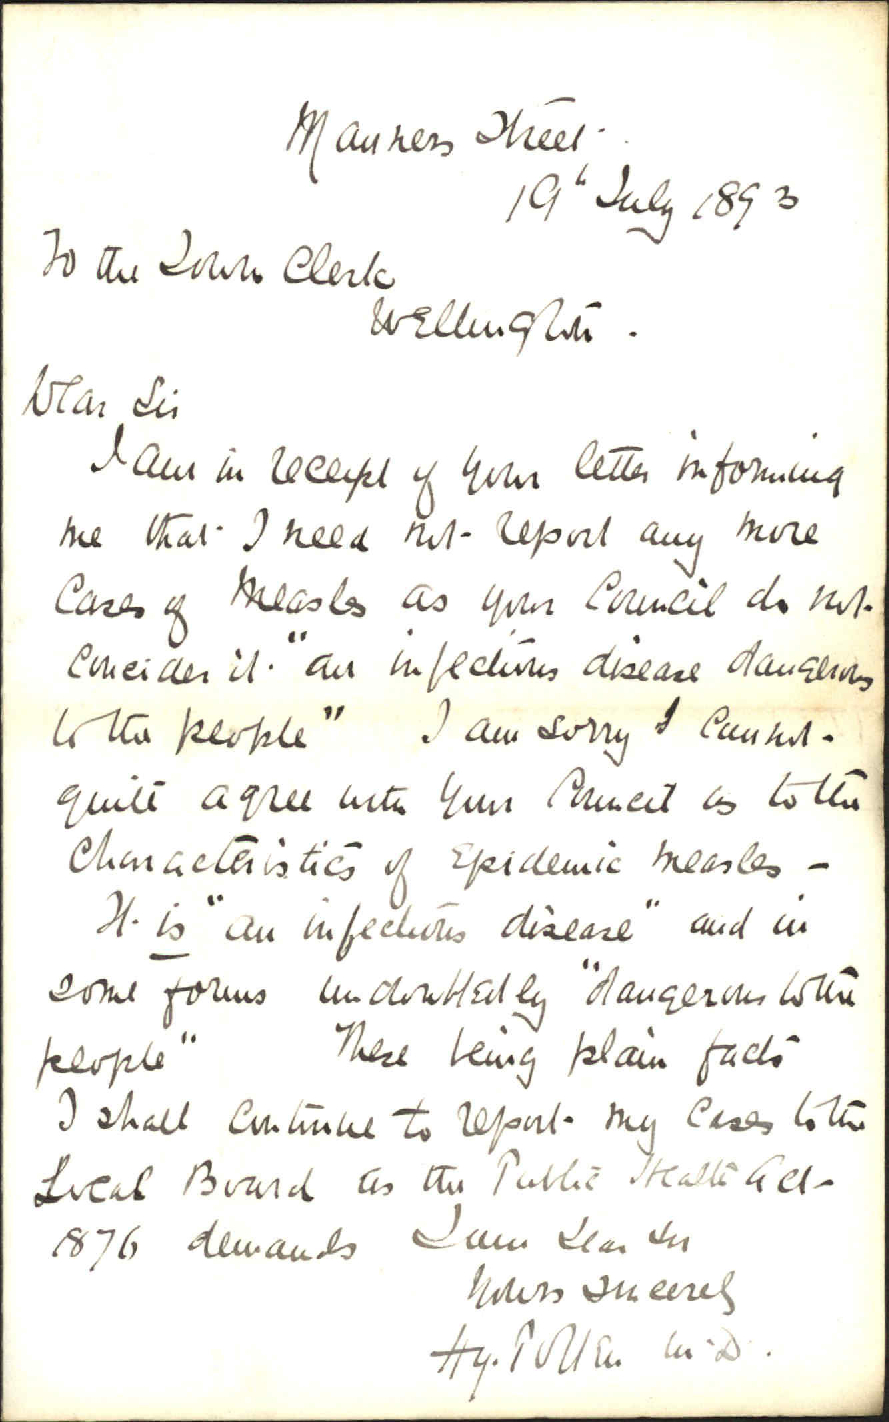 Manners Street.
19" July 1893
To the Town Clerk
Wellington.
Dear Sir
I am in receipt of your letter informing
me that I need not report any more
Cases of Measles as your Council do not
Concider it "an infectious disease dangerous
to the people" I am sorry I cannot
quite agree with your Council as to the
Characteristics of Epidemic Measles –
It is "an infectious disease" and in
some forms undoubtedly "dangerous to the
people" These being plain facts
I shall continue to report my Cases to the
Local Board as the Public Health Act
1876 demands I am Dear Sir
Yours sincerely
Hy. Pollen M.D.